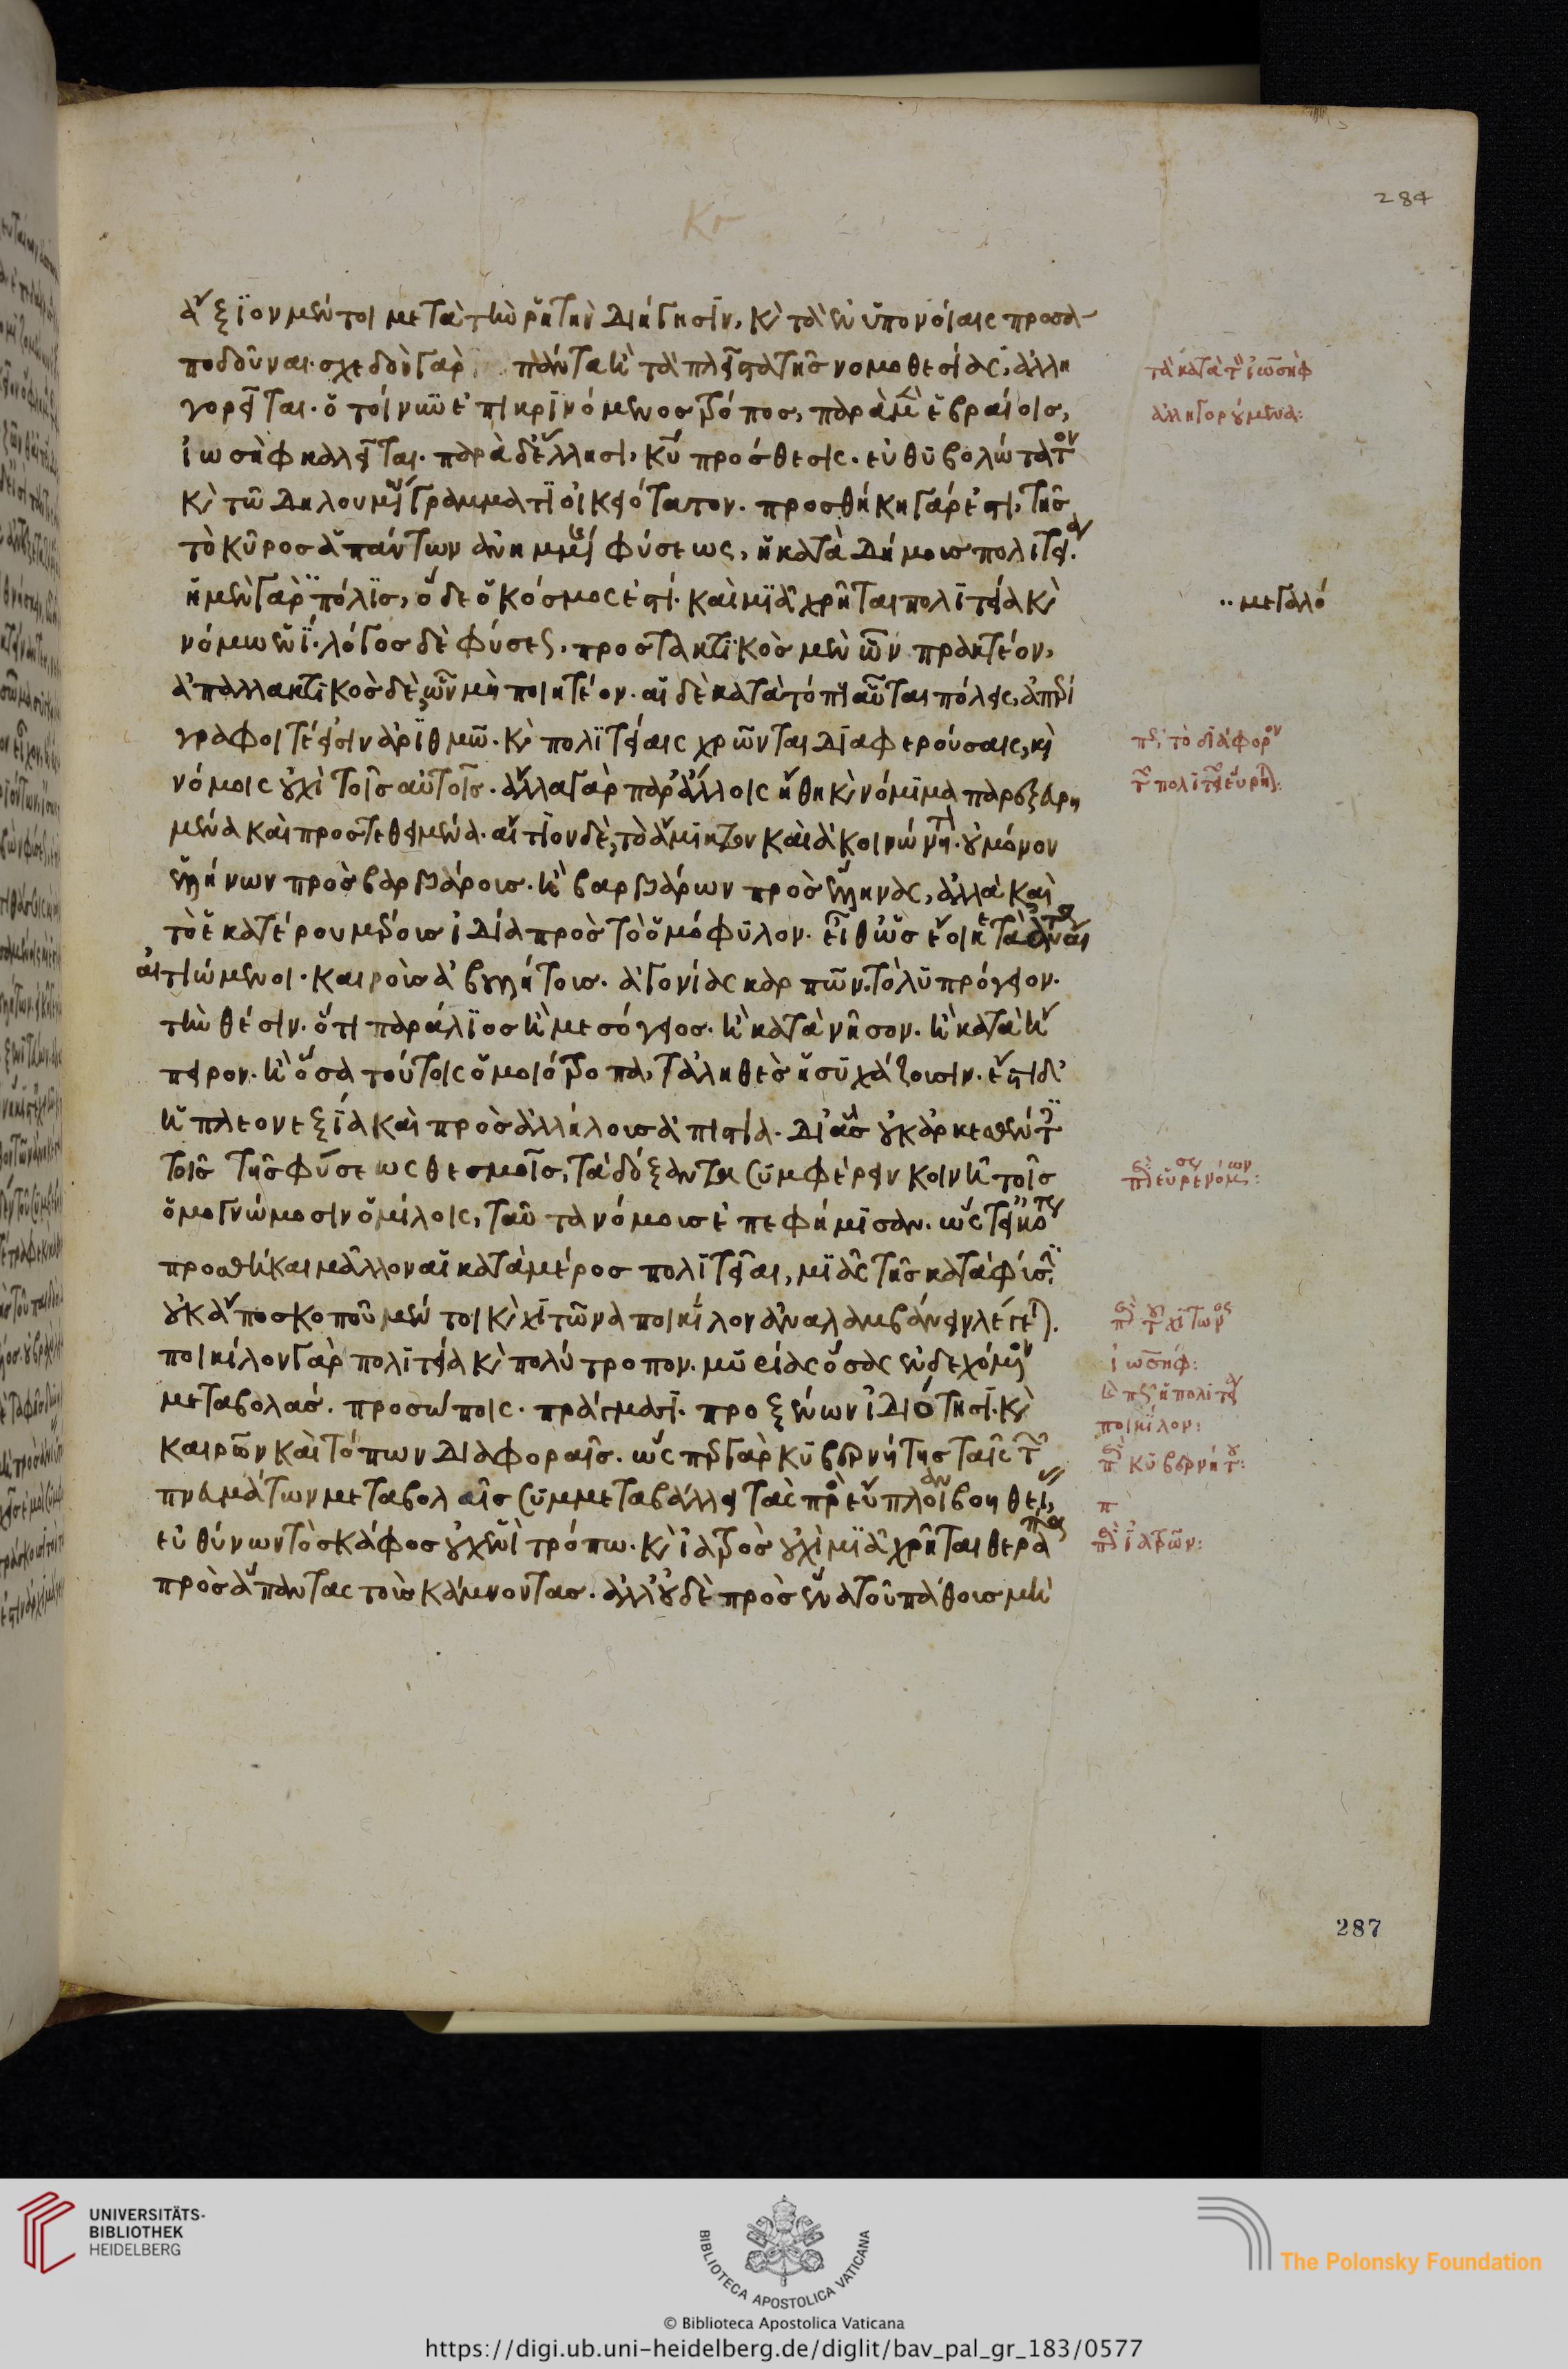 ἄξιον μέντοι μετὰ τὴν ῥητὴν διήγησιν, κ(αὶ) τὰ ἐν ὑπονοίαις προσα-
ποδοῦναι. σχεδὸν γὰρ πάντα ἢ τὰ πλεῖστα τῆς νομοθεσίας, ἀλλη
γορεῖται. ὁ τοίνυν ἐπικρινόμενος τρόπος, παρὰ μὲν ἑβραίοις,
ἰωσὴφ καλεῖται. παρὰ δ' ἕλλησι, κυ πρόσθεσις. εὐθυβολώτατον
κ(αὶ) τῶ δηλουμένω γράμματι οἰκειότατον. προσθήκη γάρ ἐστι, τῆς
τὸ κῦρος ἁπάντων ἀνημμένης φύσεως, ἡ κατὰ δήμους πολιτεία.
ἡ μὲν γὰρ πόλις, ὅδε ὁ κόσμος ἐστί. καὶ μιᾶ χρῆται πολιτεία κ(αὶ)
νόμω ἑνί. λόγος δὲ φύσεως, προστακτικὸς μὲν ὧν πρακτέον,
ἀπαλλακτικὸς δὲ, ὧν μὴ ποιητέον. αἱ δὲ κατὰ τόπους αὗται πόλεις, ἀπερί
γραφοί τέ εἰσιν ἀριθμῶ. κ(αὶ) πολιτείαις χρῶνται διαφερούσαις, κ(αὶ)
νόμοις οὐχὶ τοῖς αὐτοῖς. ἄλλα γὰρ παρ' ἄλλοις ἤθη κ(αὶ) νόμιμα παρεξευρη
μένα καὶ προστεθειμένα. αἴτιον δὲ, τὸ ἄμικτον καὶ ἀκοινώνητον. οὐ μόνον
ἑλλήνων πρὸς βαρβάρους. ἢ βαρβάρων πρὸς ἕλληνας, ἀλλὰ καὶ
τὸ ἑκατέρου μέρους ἰδία πρὸς τὸ ὁμόφυλον. εἶθ' ὡς ἔοικε τὰ ἀναίτια
αἰτιώμενοι. καιροὺς ἀβουλήτους. ἀγονίας καρπῶν. τὸ λυπρόγειον.
τὴν θέσιν. ὅτι παράλιος ἢ μεσόγειος. ἢ κατὰ νῆσον. ἢ κατὰ ἤ
πειρον. ἢ ὅσα τούτοις ὁμοιότροπα, τἀληθὲς ἡσυχάζουσιν. ἔστι δ'
ἡ πλεονεξία καὶ πρὸς ἀλλήλους ἀπιστία. δι' ἃς οὐκ ἀρκεσθέντες
τοῖς τῆς φύσεως θεσμοῖς, τὰ δόξαντα συμφέρειν κοινῆ τοῖς
ὁμογνώμοσιν ὁμίλοις, ταῦτα νόμους ἐπεφήμισαν. ὥστ' εἰκότως
προσθῆκαι μᾶλλον αἱ κατὰ μέρος πολιτεῖαι, μιᾶς τῆς κατὰ φύσιν.
οὐκ ἀπὸ σκοποῦ μέντοι κ(αὶ) χιτῶνα ποικίλον ἀναλαμβάνειν λέγεται.
ποικίλον γὰρ πολιτεία κ(αὶ) πολύτροπον. μυρίας ὅσας ἐνδεχόμενον
μεταβολάς. προσώποις. πράγμασι. προξένων ἰδιότησι. κ(αὶ)
καιρῶν καὶ τόπων διαφοραῖς. ὥσπερ γὰρ κυβερνήτης ταῖς τῶν
πνευμάτων μεταβολαῖς συμμεταβάλλει τὰς πρὸς εὔπλοιαν βοηθείας,
εὐθύνων τὸ σκάφος οὐχ ἑνὶ τρόπω. κ(αὶ) ἰατρὸς οὐχὶ μιᾶ χρῆται θεραπεία
πρὸς ἅπαντας τοὺς κάμνοντας. ἀλλ' οὐδὲ πρὸς ἕνα τοῦ πάθους μὴ
284
τὰ κατὰ τὸν ἰωσὴφ
ἀλληγορούμενα:
μεγαλό
περὶ τὸ διάφορον
περὶ εὑρέσεως νόμων:
περὶ τοῦ χιτῶνος
ἰωσήφ:
ὅτι ἡ πολιτεία
ποικίλον:
περὶ κυβερνήτου:
π
περὶ ἰατρῶν:
287
UNIVERSITÄTS-
BIBLIOTHEK
HEIDELBERG
BIBLIOTECA APOSTOLICA VATICANA
The Polonsky Foundation
© Biblioteca Apostolica Vaticana
https://digi.ub.uni-heidelberg.de/diglit/bav_pal_gr_183/0577